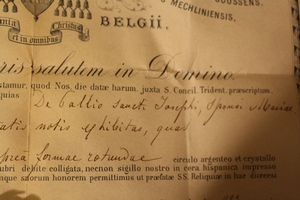 GOOSSENS,
MECHLINIENSIS,
Omnia Christus
et in omnibus
BELGII,
ris salutem in Domino.
stamur, quod Nos, die datæ harum, juxta S. Concil. Trident. præscriptum
quias De Pallio Sancti Josephi, Sponsi Mariæ
atis notis exhibitas, quas
theca formæ rotundæ circulo argenteo et crystallo
ubri debite colligata, necnon sigillo nostro in cera hispanica impresso
nque suorum honorem permittimus ut præfatæ SS. Reliquiæ in hac diœcesi